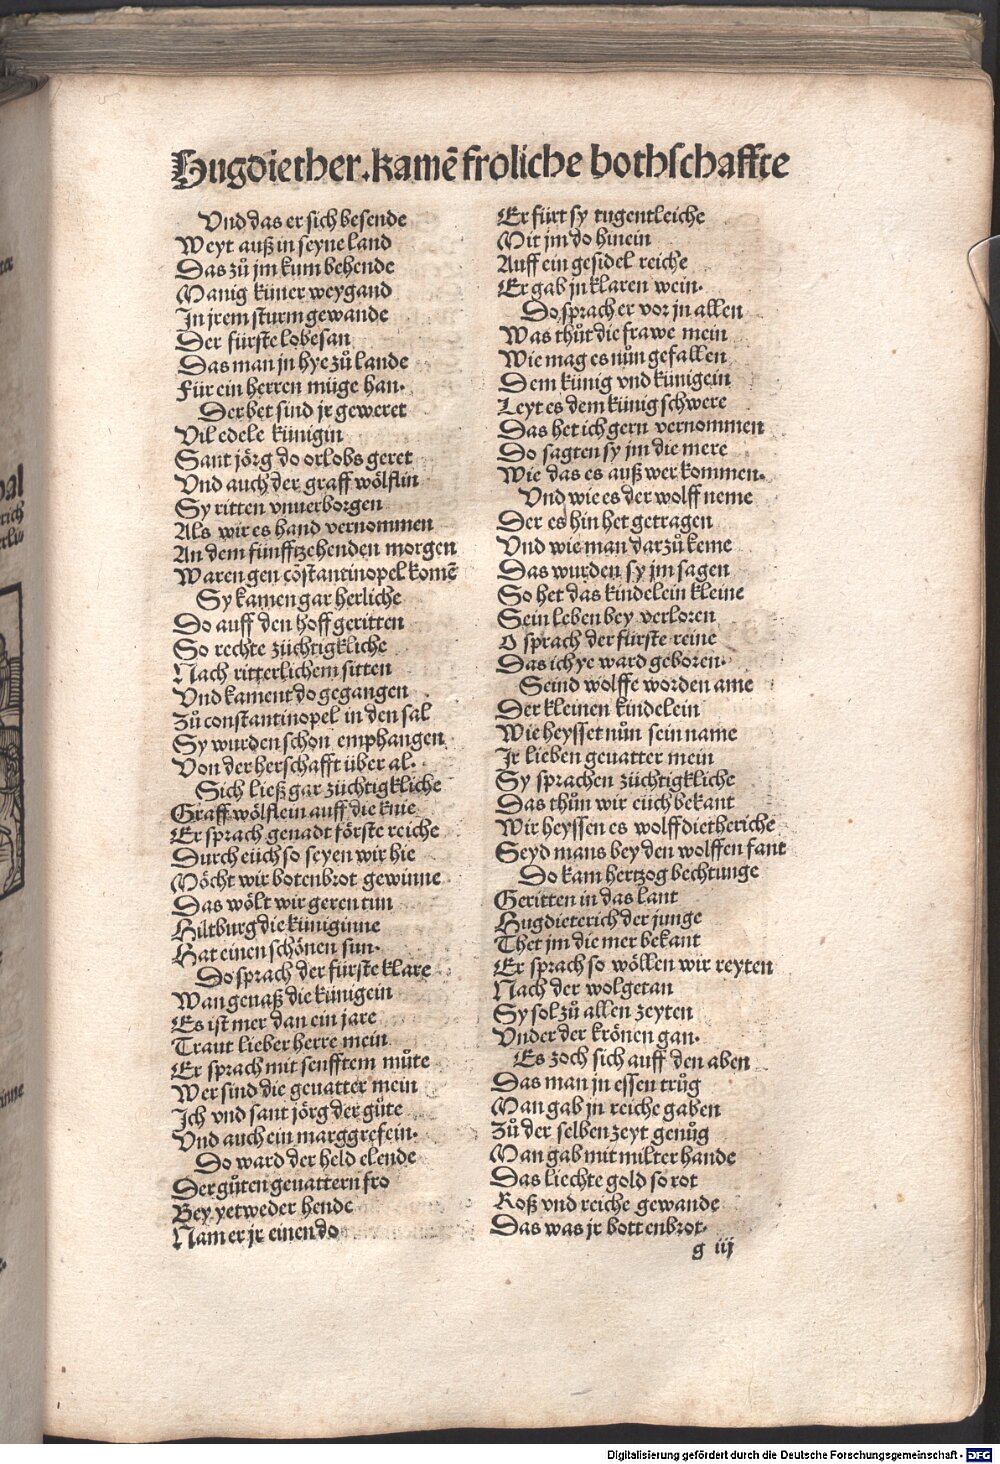 Hugdiether. kamē froliche bothschaffte
Vnd das er sich besende
Weyt auß in seyne land
Das zů jm kum behende
Manig küner weygand
In jrem sturm gewande
Der fürste lobesan
Das man jn hye zů lande
Für ein herren müge han.
Der bet sind jr geweret
Vil edele künigin
Sant jörg do orlobs geret
Vnd auch der graff wölflin
Sy ritten vnuerborgen
Als wir es hand vernommen
An dem fünfftzehenden morgen
Waren gen cōstantinopel komē
Sy kamen gar herliche
Do auff den hoff geritten
So rechte züchtigkliche
Nach ritterlichem sitten
Vnd kament do gegangen
Zů constantinopel in den sal
Sy wurden schon emphangen
Von der herschafft über al.
Sich ließ gar züchtigkliche
Graff wölflein auff die knie
Er sprach genadt förste reiche
Durch eüch so seyen wir hie
Möcht wir botenbrot gewinne
Das wölt wir geren tun
Hiltburg die küniginne
Hat einen schönen sun.
Do sprach der fürste klare
Wan genaß die künigein
Es ist mer dan ein jare
Traut lieber herre mein
Er sprach mit senfftem můte
Wer sind die geuatter mein
Ich vnd sant jörg der gůte
Vnd auch ein marggrefein.
Do ward der held elende
Der gůten geuattern fro
Bey yetweder hende
Nam er jr einen do
Er fürt sy tugentleiche
Mit jm do hinein
Auff ein gesidel reiche
Er gab jn klaren wein.
Do sprach er vor jn allen
Was thůt die frawe mein
Wie mag es nůn gefallen
Dem künig vnd künigein
Leyt es dem künig schwere
Das het ich gern vernommen
Do sagten sy jm die mere
Wie das es auß wer kommen.
Vnd wie es der wolff neme
Der es hin het getragen
Vnd wie man darzů keme
Das wurden sy jm sagen
So het das kindelein kleine
Sein leben bey verloren
O sprach der fürste reine
Das ich ye ward geboren.
Seind wolffe worden ame
Der kleinen kindelein
Wie heysset nůn sein name
Ir lieben geuatter mein
Sy sprachen züchtigkliche
Das thůn wir eüch bekant
Wir heyssen es wolffdietheriche
Seyd mans bey den wolffen fant
Do kam hertzog bechtunge
Geritten in das lant
Hugdieterich der junge
Thet jm die mer bekant
Er sprach so wöllen wir reyten
Nach der wolgetan
Sy sol zů allen zeyten
Vnder der krönen gan.
Es zoch sich auff den aben
Das man jn essen trůg
Man gab jn reiche gaben
Zů der selben zeyt genůg
Man gab mit milter hande
Das liechte gold so rot
Roß vnd reiche gewande
Das was jr bottenbrot.
g iij
Digitalisierung gefördert durch die Deutsche Forschungsgemeinschaft - DFG